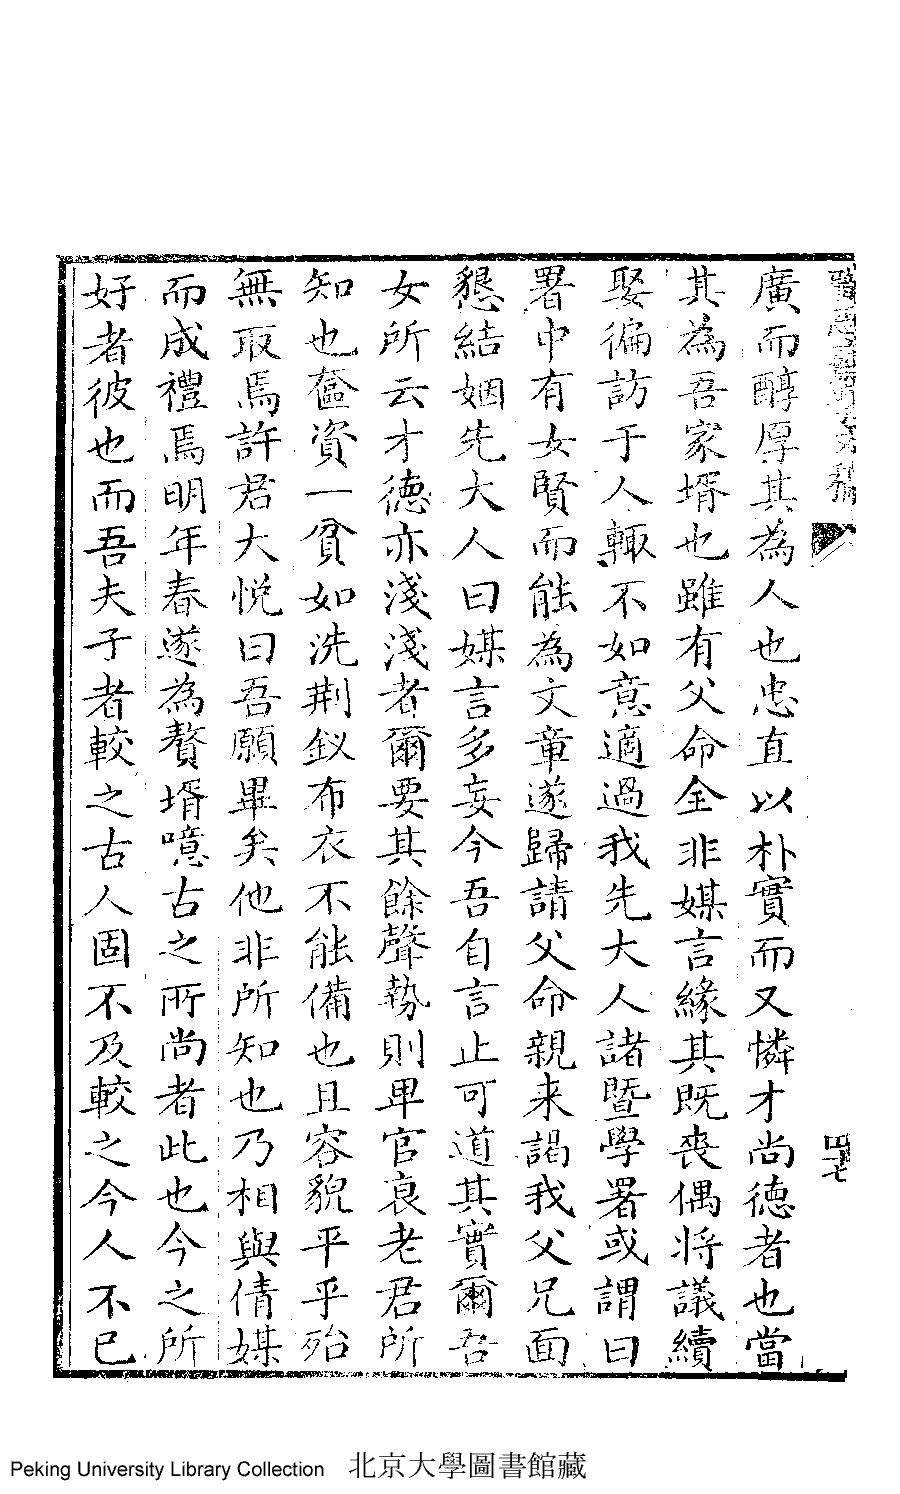 廣而醇厚其為人也忠直以朴實而又憐才尚德者也當
其為吾家壻也雖有父命全非媒言緣其既喪偶將議續
娶徧訪于人輒不如意適過我先大人諸暨學署或謂曰
署中有女賢而能為文章遂歸請父命親来謁我父兄面
懇結姻先大人曰媒言多妄今吾自言止可道其實爾吾
女所云才德亦淺淺者爾要其餘聲勢則卑官衰老君所
知也奩資一貧如洗荆釵布衣不能備也且容貌平乎殆
無取焉許君大悦曰吾願畢矣他非所知也乃相與倩媒
而成禮焉明年春遂為贅壻噫古之所尚者此也今之所
好者彼也而吾夫子者較之古人固不及較之今人不已
四十七
Peking University Library Collection 北京大學圖書館藏